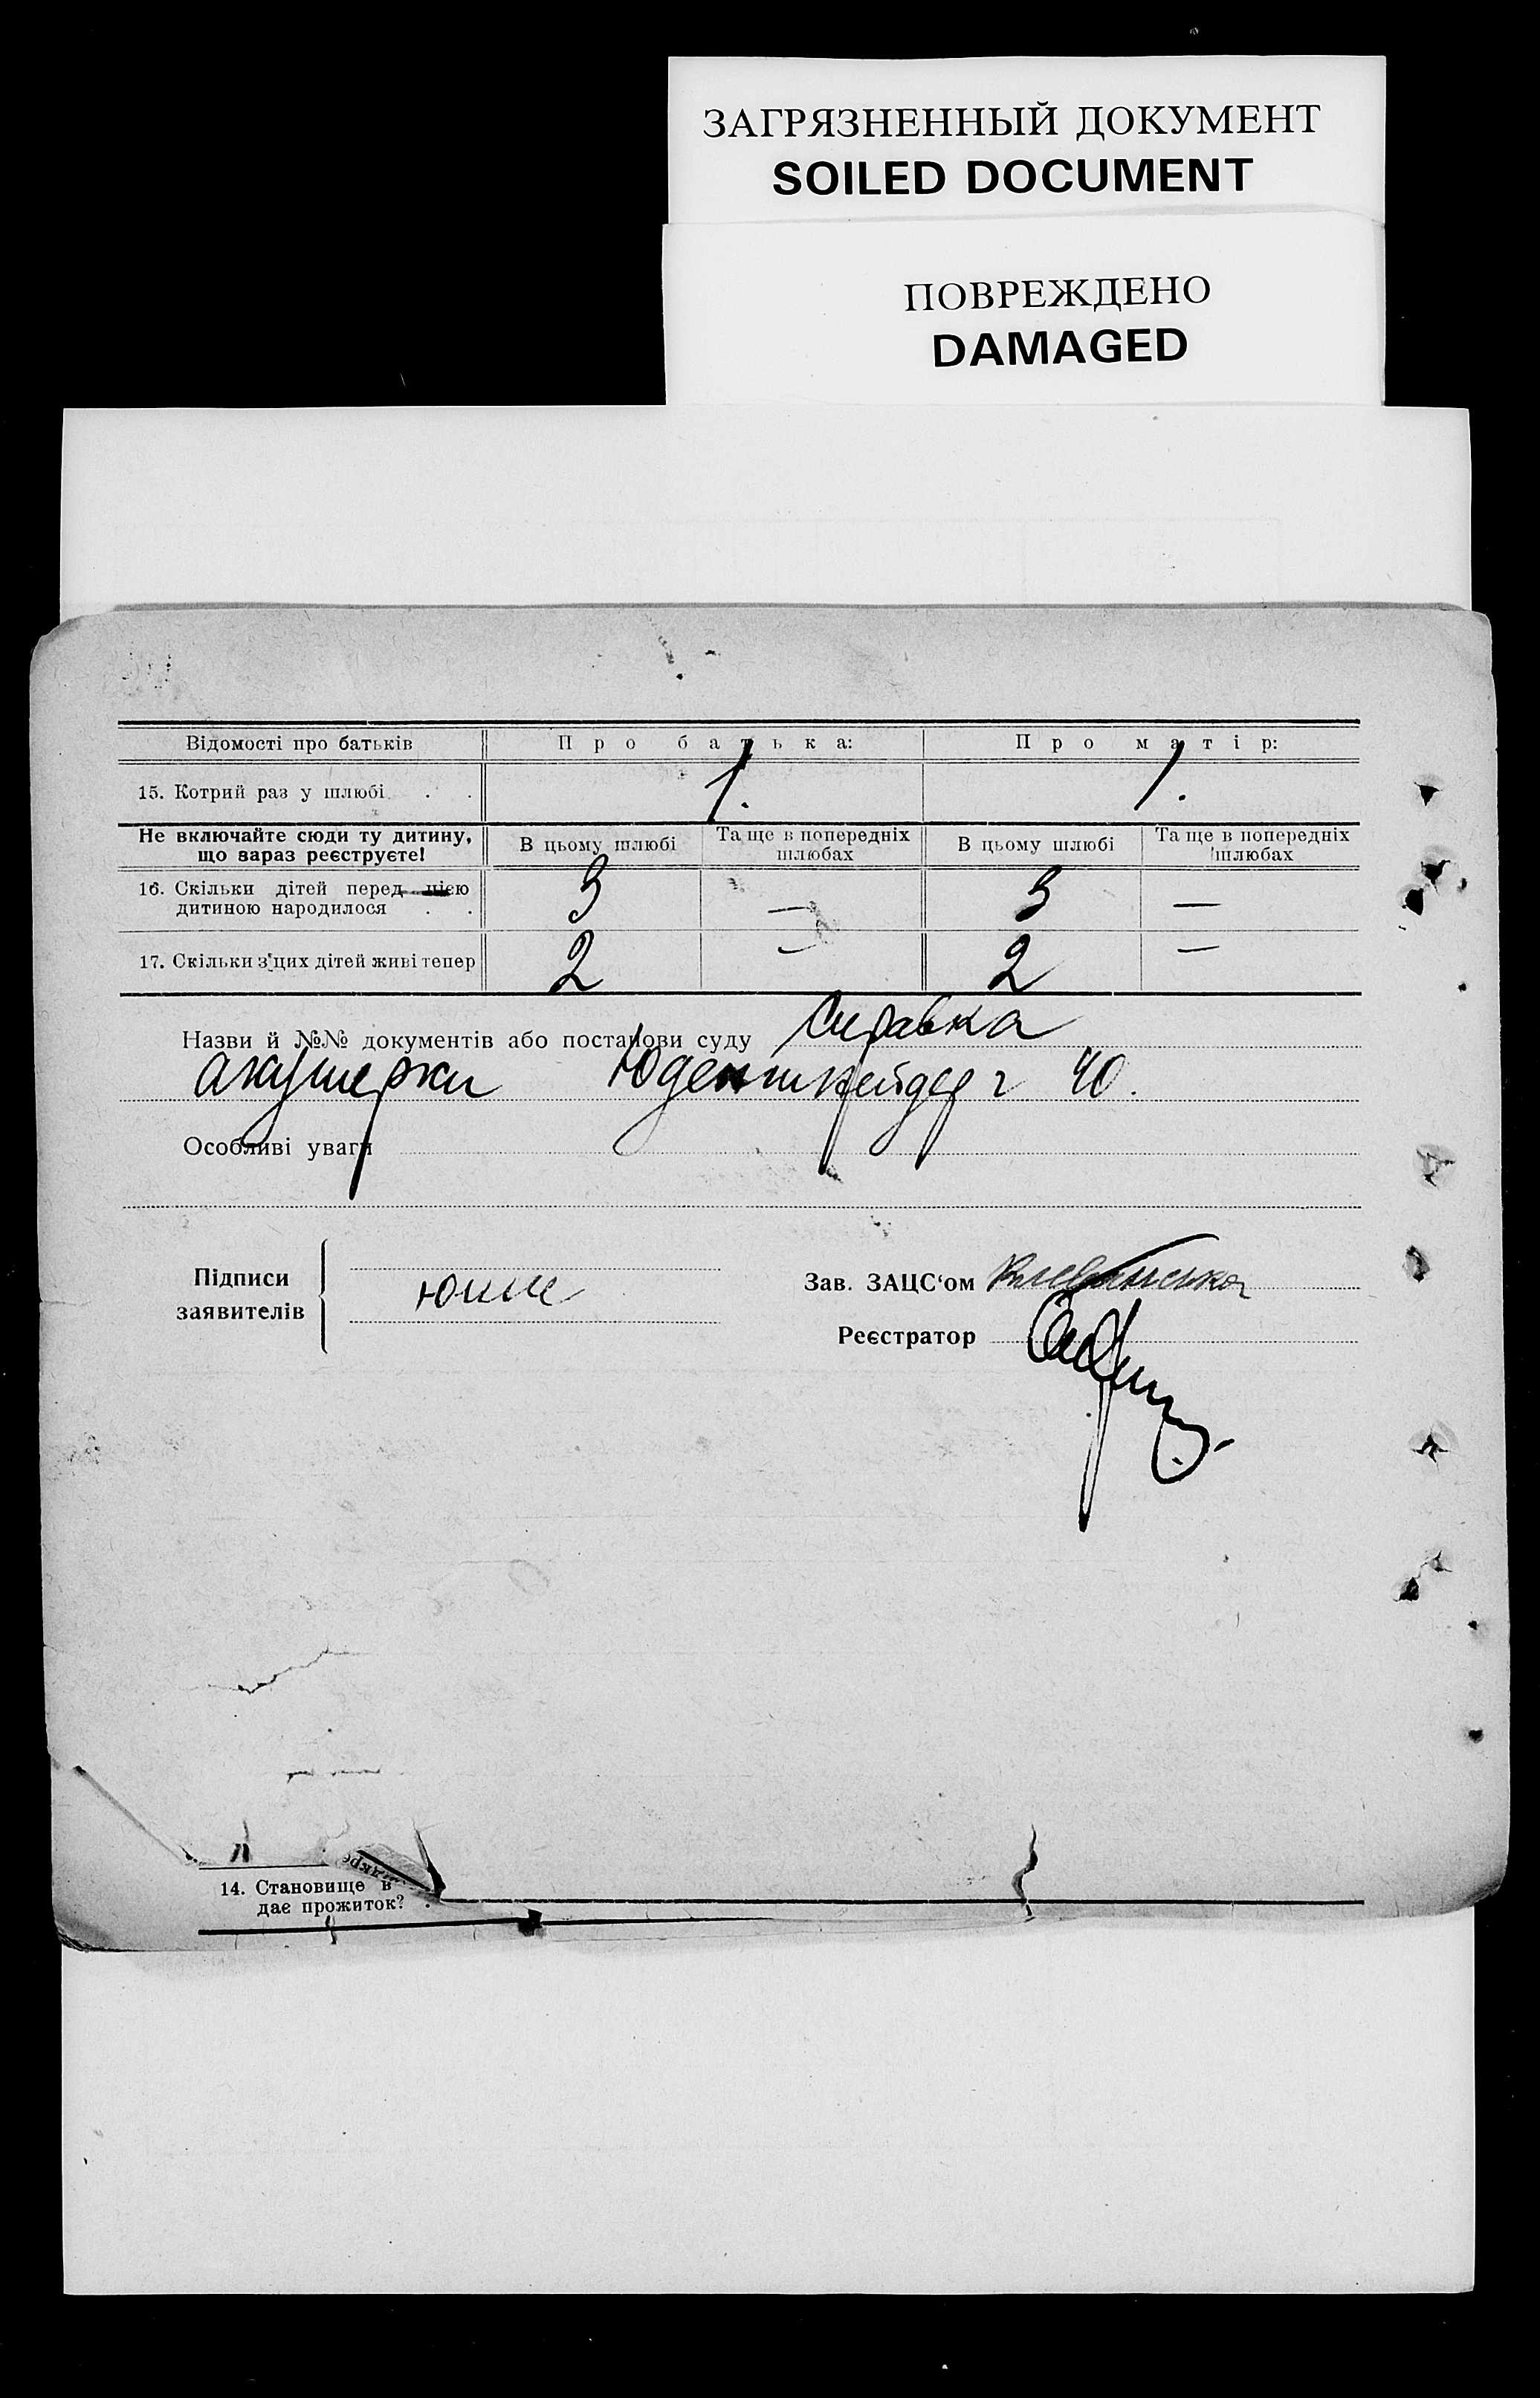 ЗАГРЯЗНЕННЫЙ ДОКУМЕНТ
SOILED DOCUMENT
ПОВРЕЖДЕНО
DAMAGED
Відомості про батьків Про батька: Про матір:
15. Котрий раз у шлюбі . . 1. 1.
Не включайте сюди ту дитину, що вараз реєструєте! В цьому шлюбі Та ще в попередніх шлюбах В цьому шлюбі Та ще в попередніх шлюбах
16. Скільки дітей перед цією
дитиною народилося . . 3 — 3 —
17. Скільки з'цих дітей живі тепер 2 — 2 —
Назви й №№ документів або постанови суду Справка
акушерки г 40.
Особливі уваги
Підписи
заявителів
Зав. ЗАЦС'ом
Реєстратор
14. Становище в
дає прожиток? .